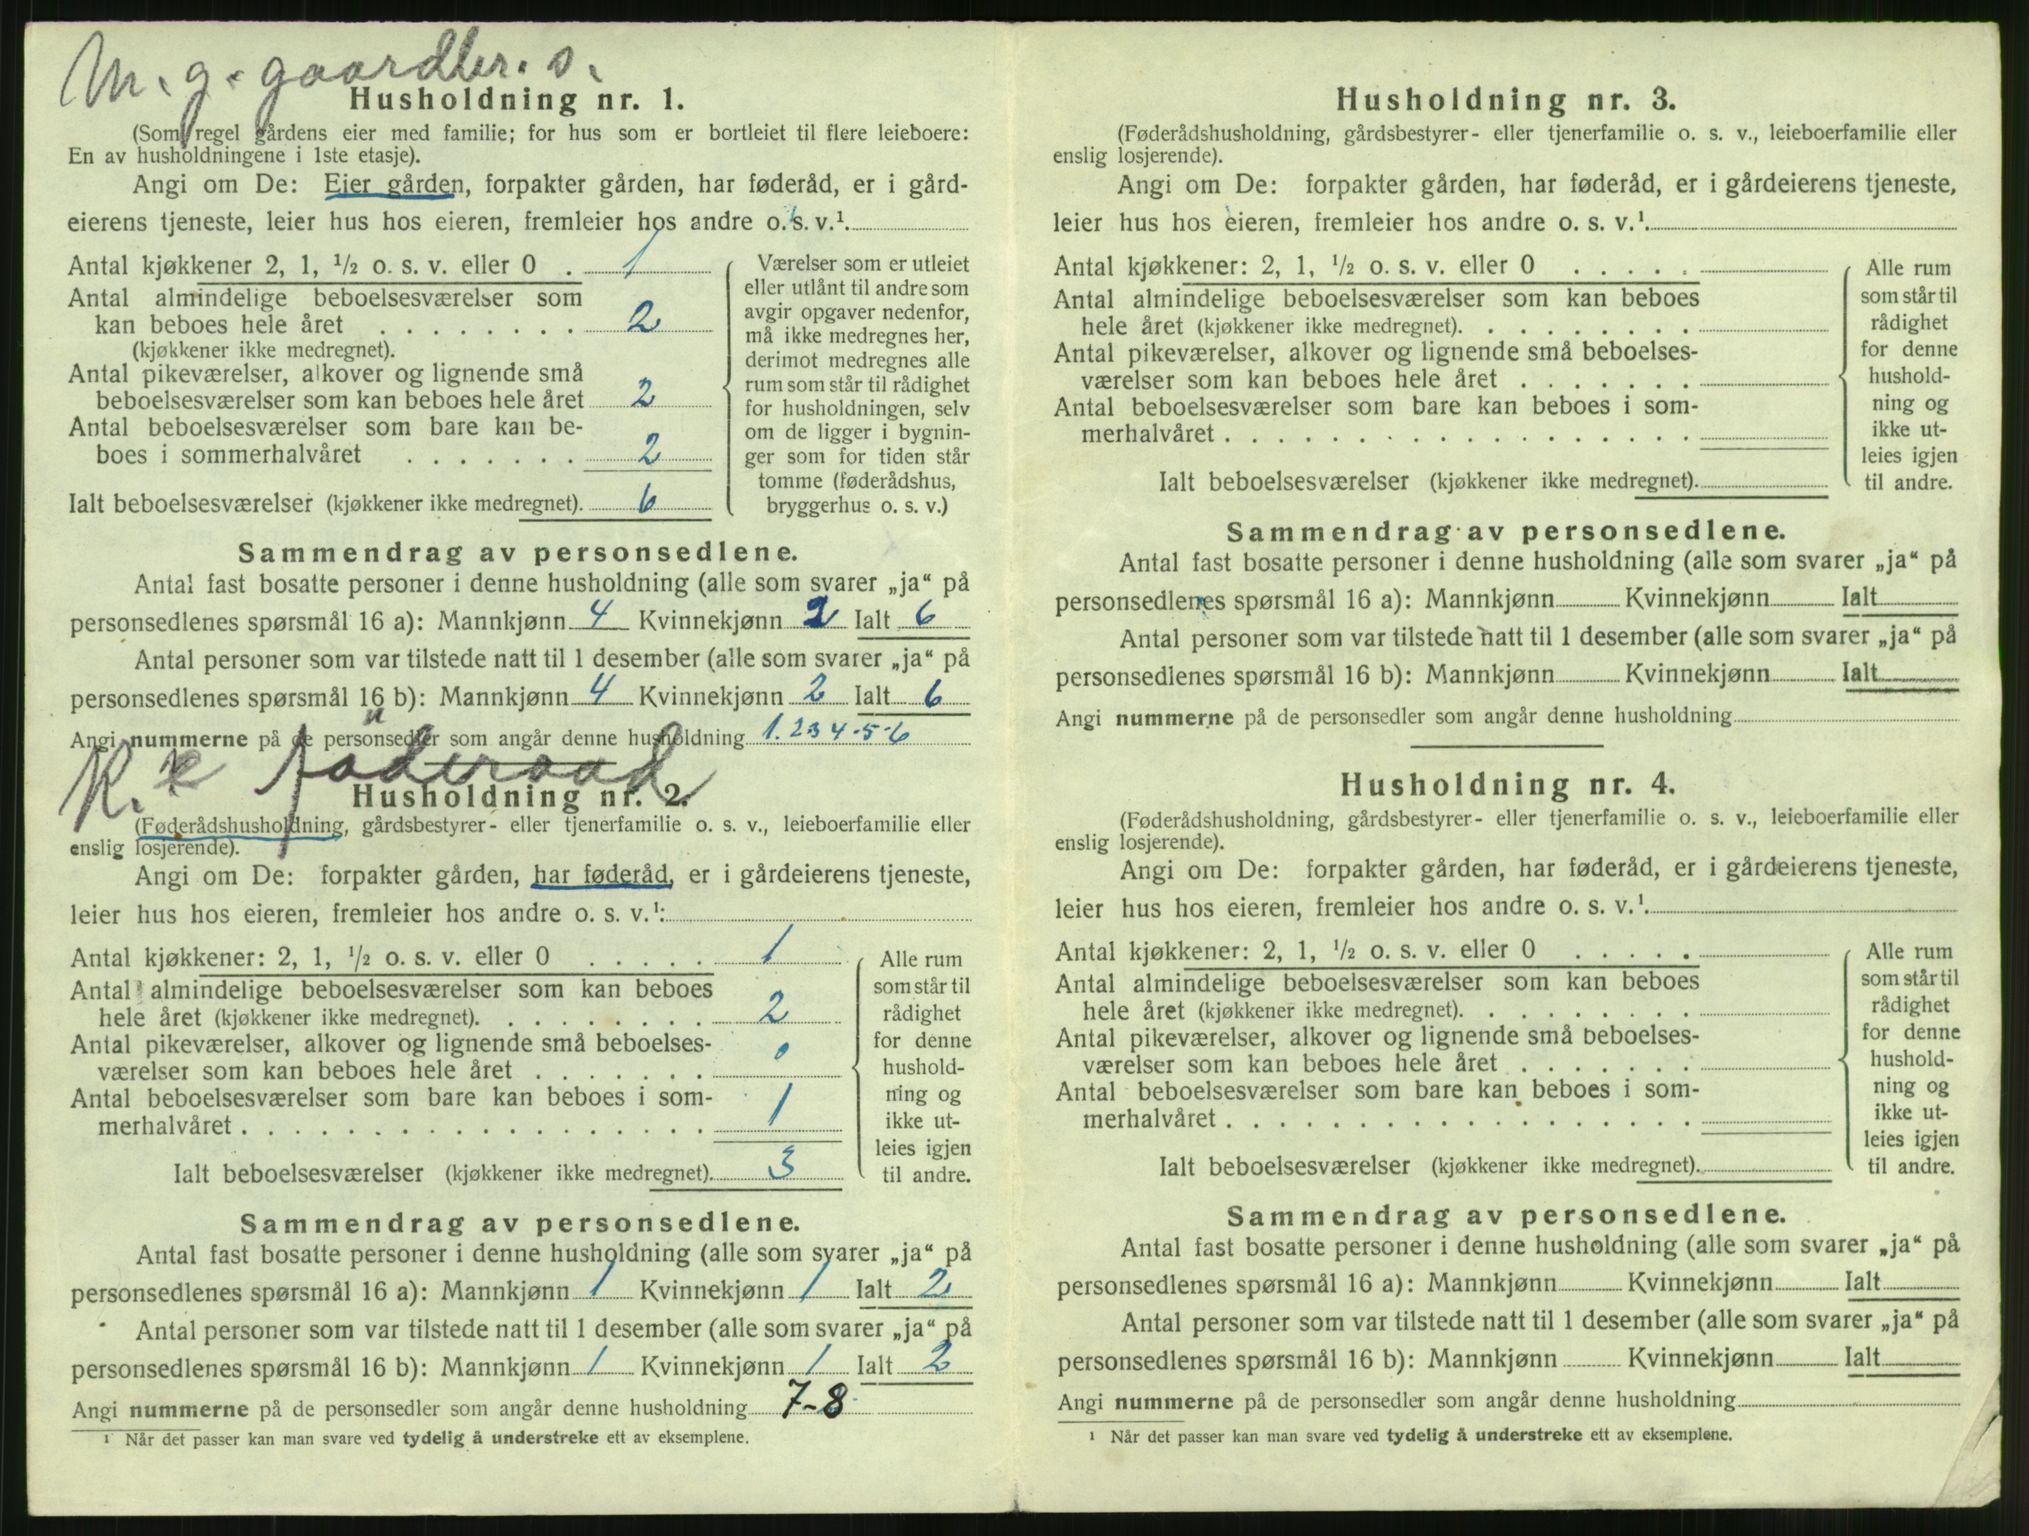 M. g. gaardbr. s.
Husholdning nr. 1.
(Som regel gårdens eier med familie; for hus som er bortleiet til flere leieboere:
En av husholdningene i 1ste etasje).
Angi om De: Eier gården, forpakter gården, har føderåd, er i gård-
eierens tjeneste, leier hus hos eieren, fremleier hos andre o. s. v.¹
Antal kjøkkener 2, 1, ½ o. s. v. eller 0 . 1
Antal almindelige beboelsesværelser som
kan beboes hele året . . . . . . . . 2
(kjøkkener ikke medregnet).
Antal pikeværelser, alkover og lignende små
beboelsesværelser som kan beboes hele året 2
Antal beboelsesværelser som bare kan be-
boes i sommerhalvåret . . . . . . . 2
Ialt beboelsesværelser (kjøkkener ikke medregnet). 6
Værelser som er utleiet
eller utlånt til andre som
avgir opgaver nedenfor,
må ikke medregnes her,
derimot medregnes alle
rum som står til rådighet
for husholdningen, selv
om de ligger i bygnin-
ger som for tiden står
tomme (føderådshus,
bryggerhus o. s. v.)
Sammendrag av personsedlene.
Antal fast bosatte personer i denne husholdning (alle som svarer „ja“ på
personsedlenes spørsmål 16 a): Mannkjønn 4 Kvinnekjønn 2 Ialt 6
Antal personer som var tilstede natt til 1 desember (alle som svarer „ja“ på
personsedlenes spørsmål 16 b): Mannkjønn 4 Kvinnekjønn 2 Ialt 6
Angi nummerne på de personsedler som angår denne husholdning 1. 2 3 4 - 5 - 6
føderaad
Husholdning nr. 2.
(Føderådshusholdning, gårdsbestyrer- eller tjenerfamilie o. s. v., leieboerfamilie eller
enslig losjerende).
Angi om De: forpakter gården, har føderåd, er i gårdeierens tjeneste,
leier hus hos eieren, fremleier hos andre o. s. v.¹:
Antal kjøkkener: 2, 1, ½ o. s. v. eller 0 . . . . . 1
Antal almindelige beboelsesværelser som kan beboes
hele året (kjøkkener ikke medregnet). . . . . . . . 2
Antal pikeværelser, alkover og lignende små beboelses-
værelser som kan beboes hele året . . . . . . . 0
Antal beboelsesværelser som bare kan beboes i som-
merhalvåret . . . . . . . . . . . . . . . . . . 1
Ialt beboelsesværelser (kjøkkener ikke medregnet). 3
Alle rum
som står til
rådighet
for denne
hushold-
ning og
ikke ut-
leies igjen
til andre.
Sammendrag av personsedlene.
Antal fast bosatte personer i denne husholdning (alle som svarer „ja“ på
personsedlenes spørsmål 16 a): Mannkjønn 1 Kvinnekjønn 1 Ialt 2
Antal personer som var tilstede natt til 1 desember (alle som svarer „ja“ på
personsedlenes spørsmål 16 b): Mannkjønn 1 Kvinnekjønn 1 Ialt 2
Angi nummerne på de personsedler som angår denne husholdning 7-8
¹ Når det passer kan man svare ved tydelig å understreke ett av eksemplene.
Husholdning nr. 3.
(Føderådshusholdning, gårdsbestyrer- eller tjenerfamilie o. s. v., leieboerfamilie eller
enslig losjerende).
Angi om De: forpakter gården, har føderåd, er i gårdeierens tjeneste,
leier hus hos eieren, fremleier hos andre o. s. v.¹.
Antal kjøkkener: 2, 1, ½ o. s. v. eller 0 . . . . .
Antal almindelige beboelsesværelser som kan beboes
hele året (kjøkkener ikke medregnet). . . . . . . . .
Antal pikeværelser, alkover og lignende små beboelses-
værelser som kan beboes hele året . . . . . . .
Antal beboelsesværelser som bare kan beboes i som-
merhalvåret . . . . . . . . . . . . . . . . . .
Ialt beboelsesværelser (kjøkkener ikke medregnet).
Alle rum
som står til
rådighet
for denne
hushold-
ning og
ikke ut-
leies igjen
til andre.
Sammendrag av personsedlene.
Antal fast bosatte personer i denne husholdning (alle som svarer „ja“ på
personsedlenes spørsmål 16 a): Mannkjønn Kvinnekjønn Ialt
Antal personer som var tilstede natt til 1 desember (alle som svarer „ja“ på
personsedlenes spørsmål 16 b): Mannkjønn Kvinnekjønn Ialt
Angi nummerne på de personsedler som angår denne husholdning
Husholdning nr. 4.
(Føderådshusholdning, gårdsbestyrer- eller tjenerfamilie o. s. v., leieboerfamilie eller
enslig losjerende).
Angi om De: forpakter gården, har føderåd, er i gårdeierens tjeneste,
leier hus hos eieren, fremleier hos andre o. s. v.¹.
Antal kjøkkener: 2, 1, ½ o. s. v. eller 0 . . . . .
Antal almindelige beboelsesværelser som kan beboes
hele året (kjøkkener ikke medregnet). . . . . . . . .
Antal pikeværelser, alkover og lignende små beboelses-
værelser som kan beboes hele året . . . . . . .
Antal beboelsesværelser som bare kan beboes i som-
merhalvåret . . . . . . . . . . . . . . . . . .
Ialt beboelsesværelser (kjøkkener ikke medregnet).
Alle rum
som står til
rådighet
for denne
hushold-
ning og
ikke ut-
leies igjen
til andre.
Sammendrag av personsedlene.
Antal fast bosatte personer i denne husholdning (alle som svarer „ja“ på
personsedlenes spørsmål 16 a): Mannkjønn Kvinnekjønn Ialt
Antal personer som var tilstede natt til 1 desember (alle som svarer „ja“ på
personsedlenes spørsmål 16 b): Mannkjønn Kvinnekjønn Ialt
Angi nummerne på de personsedler som angår denne husholdning
¹ Når det passer kan man svare ved tydelig å understreke ett av eksemplene.